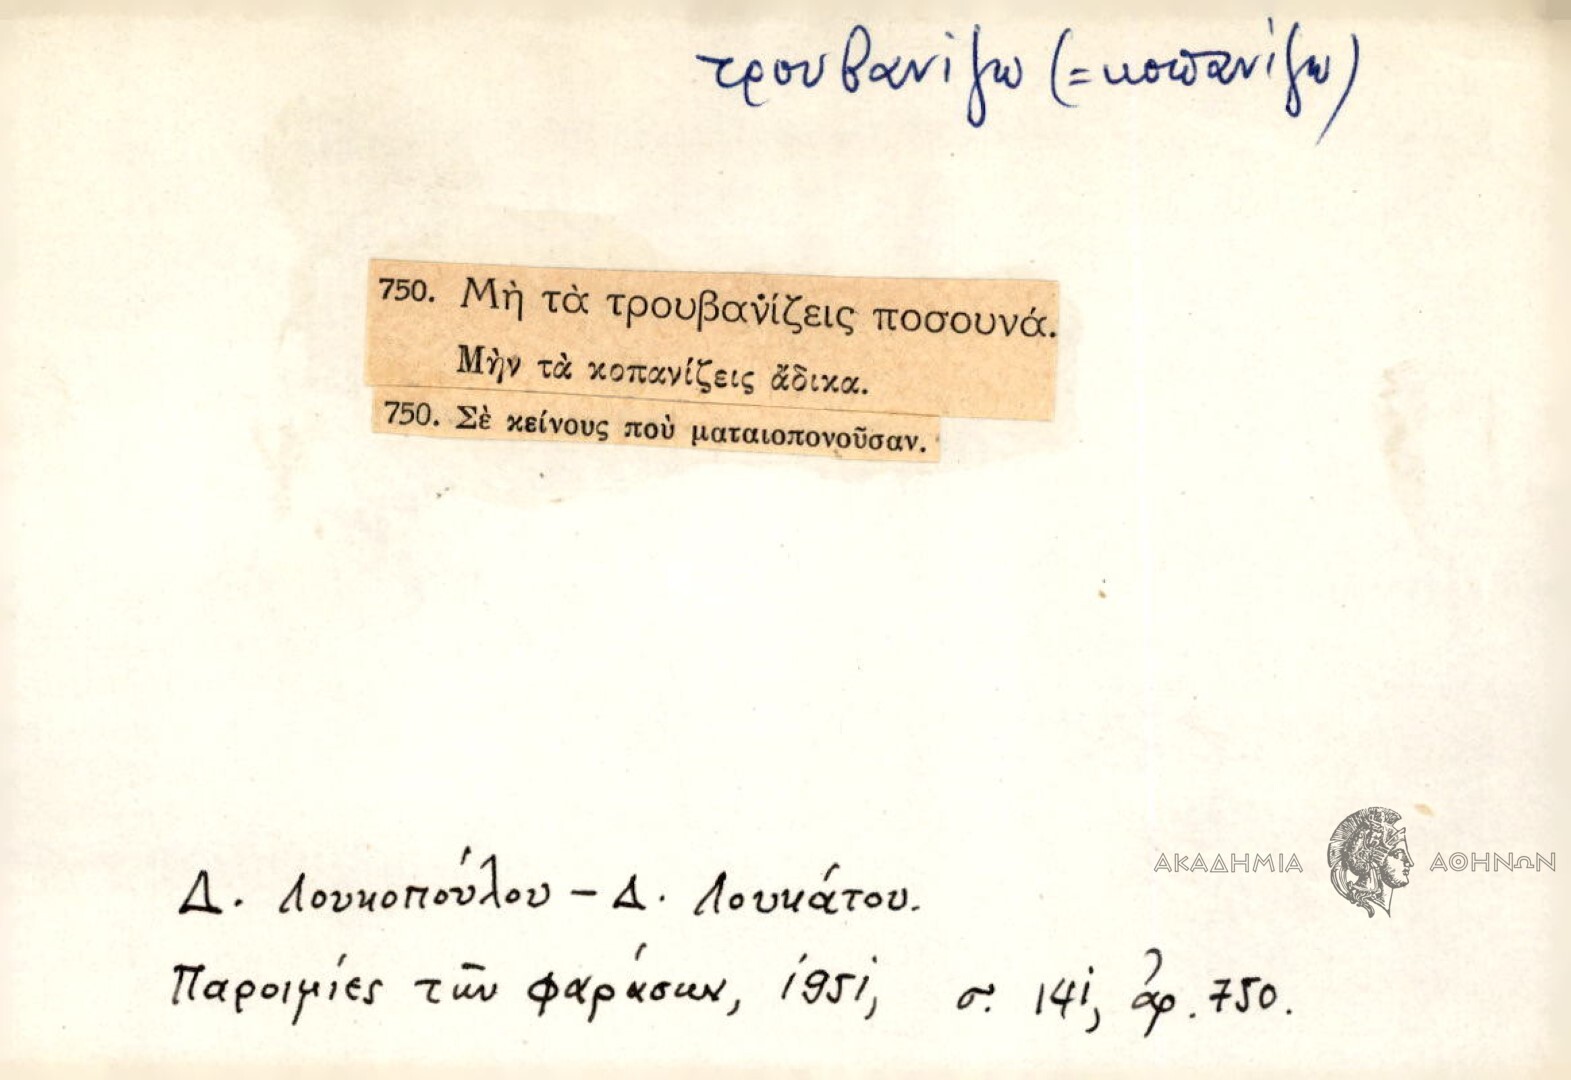 τρουβανίζω (=κοπανίζω)
750. Μὴ τὰ τρουβανίζεις ποσουνά.
Μὴν τὰ κοπανίζεις ἄδικα.
750. Σὲ κείνους ποὺ ματαιοπονοῦσαν.
ΑΚΑΔΗΜΙΑ ΑΘΗΝΩΝ
Δ. Λουκοπούλου – Δ. Λουκάτου.
Παροιμίες τῶν Φαράσων, 1951, σ. 141, ἀρ. 750.